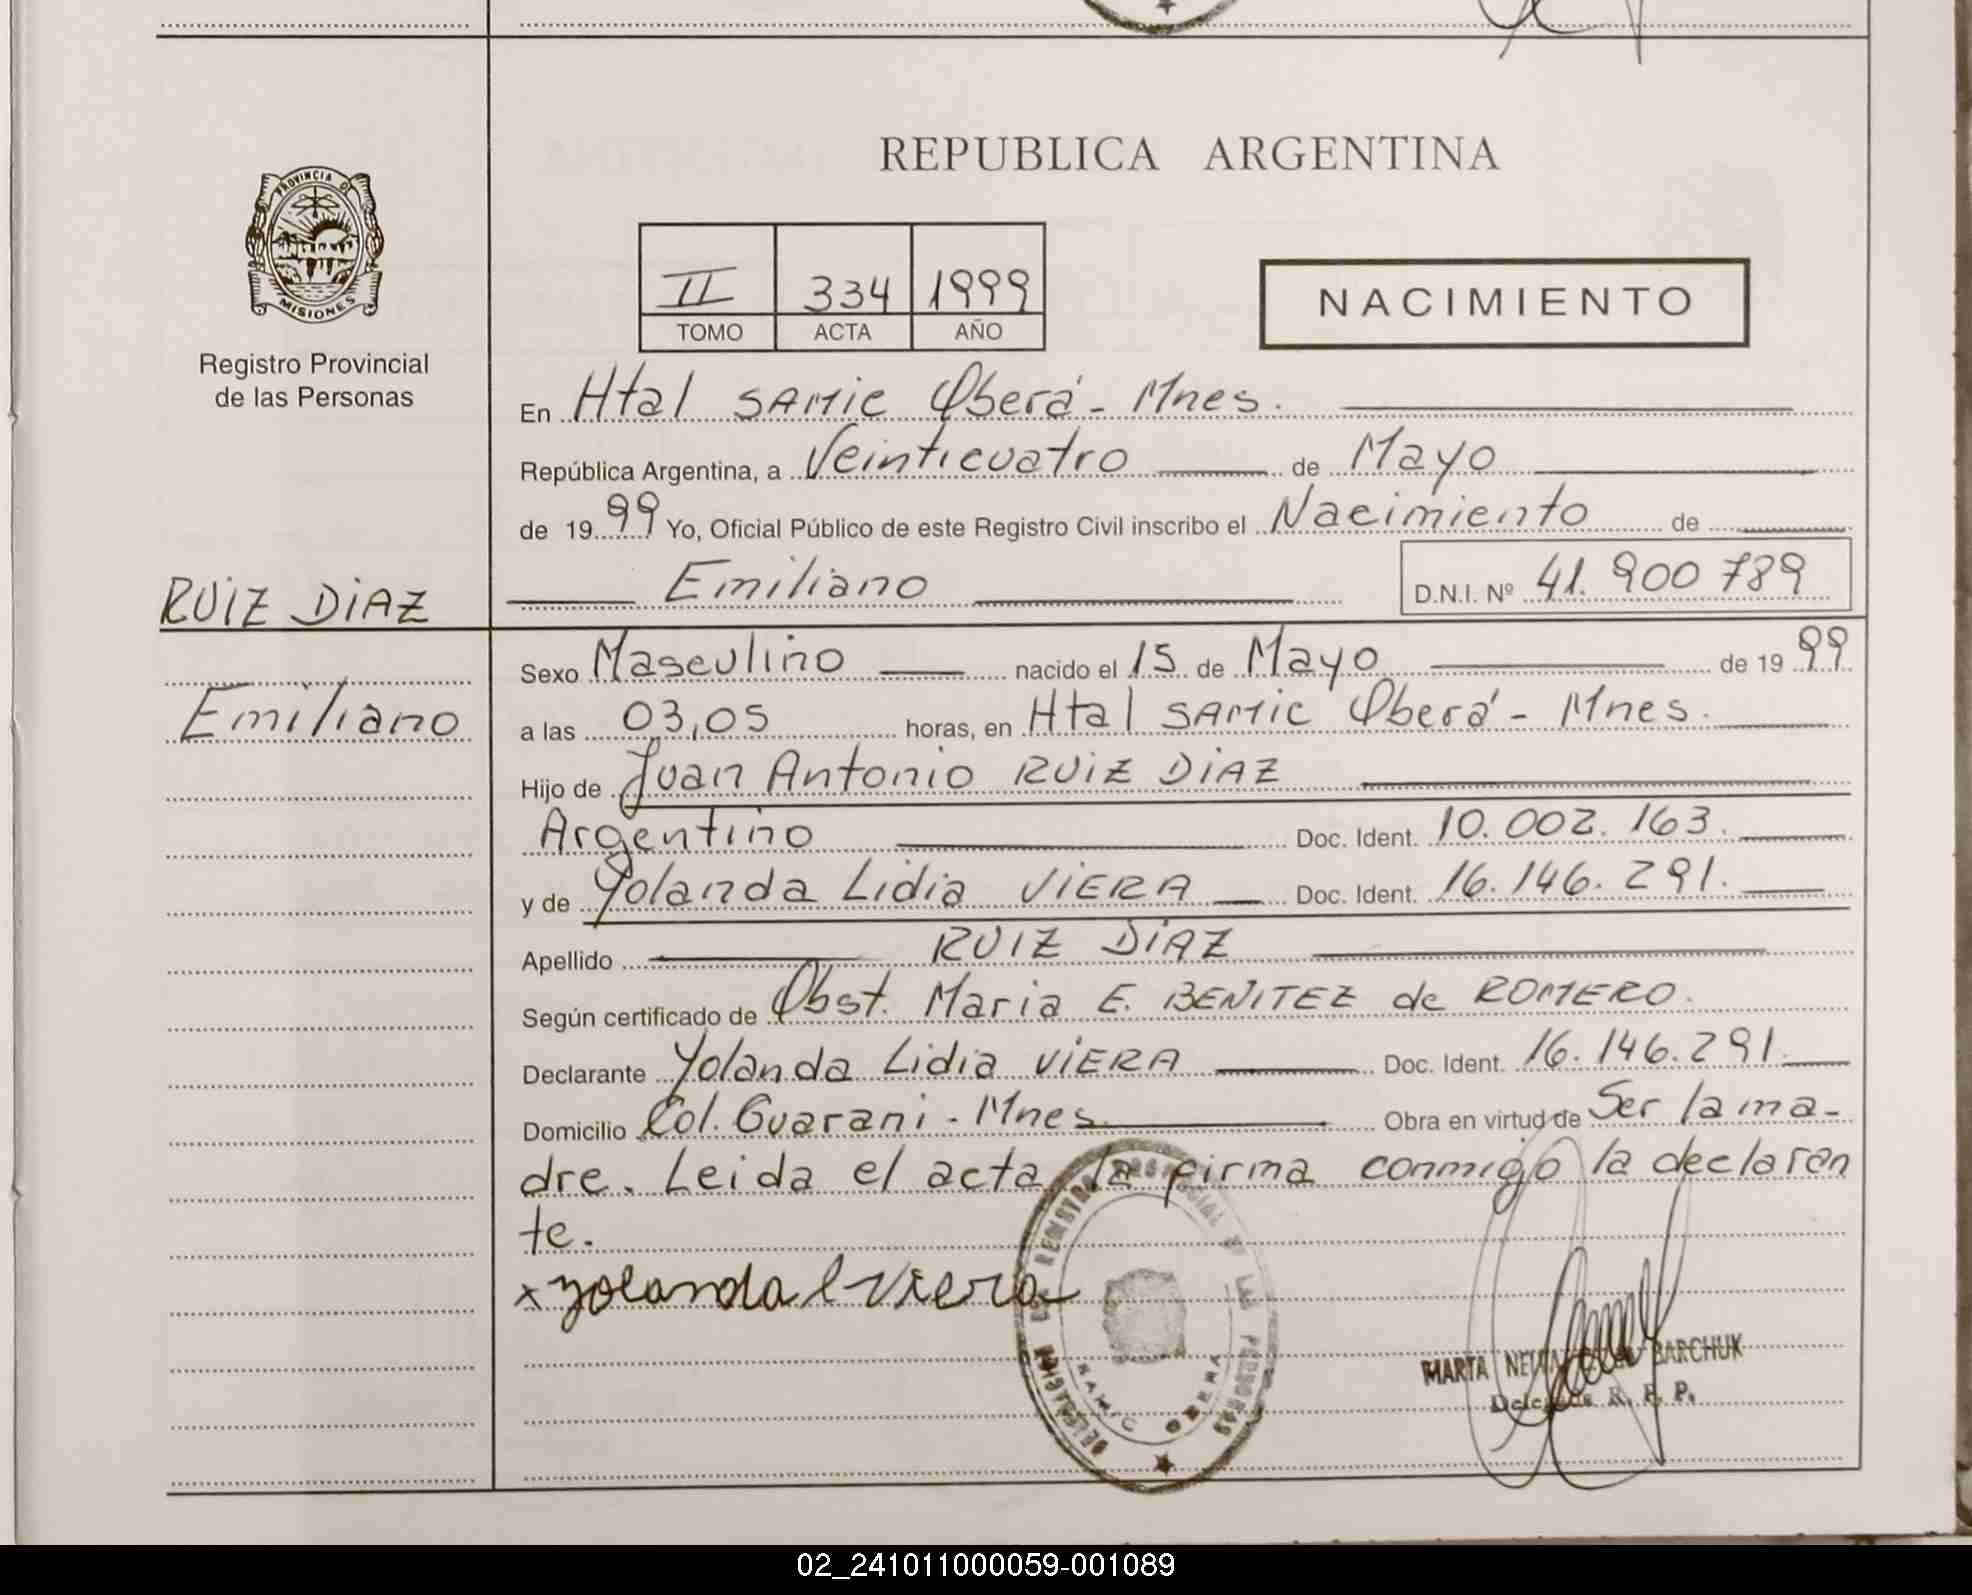 REPUBLICA ARGENTINA
PROVINCIA D
MISIONES
Registro Provincial
de las Personas
II 334 1999
TOMO ACTA AÑO
NACIMIENTO
En Htal SAMIC Oberá - Mnes.
República Argentina, a Veinticuatro de Mayo
de 1999 Yo, Oficial Público de este Registro Civil inscribo el Nacimiento de
RUIZ DIAZ
Emiliano D.N.I. Nº 41.900789
Emiliano
Sexo Masculino nacido el 15 de Mayo de 1999
a las 03,05 horas, en Htal SAMIC Oberá - Mnes.
Hijo de Juan Antonio RUIZ DIAZ
Argentino Doc. Ident. 10.002.163.
y de Yolanda Lidia VIERA Doc. Ident. 16.146.291.
Apellido RUIZ DIAZ
Según certificado de Obst. Maria E. BENITEZ de ROMERO.
Declarante Yolanda Lidia VIERA Doc. Ident. 16.146.291.
Domicilio Col. Guarani - Mnes. Obra en virtud de Ser la ma-
dre. Leida el acta, la firma conmigo la declaran
te.
x yolanda l viera
DELEGACION REGISTRO PROVINCIAL DE LAS PERSONAS
SAMIC OBERA
MARTA BARCHUK
Delegada R. P. P.
02_241011000059-001089